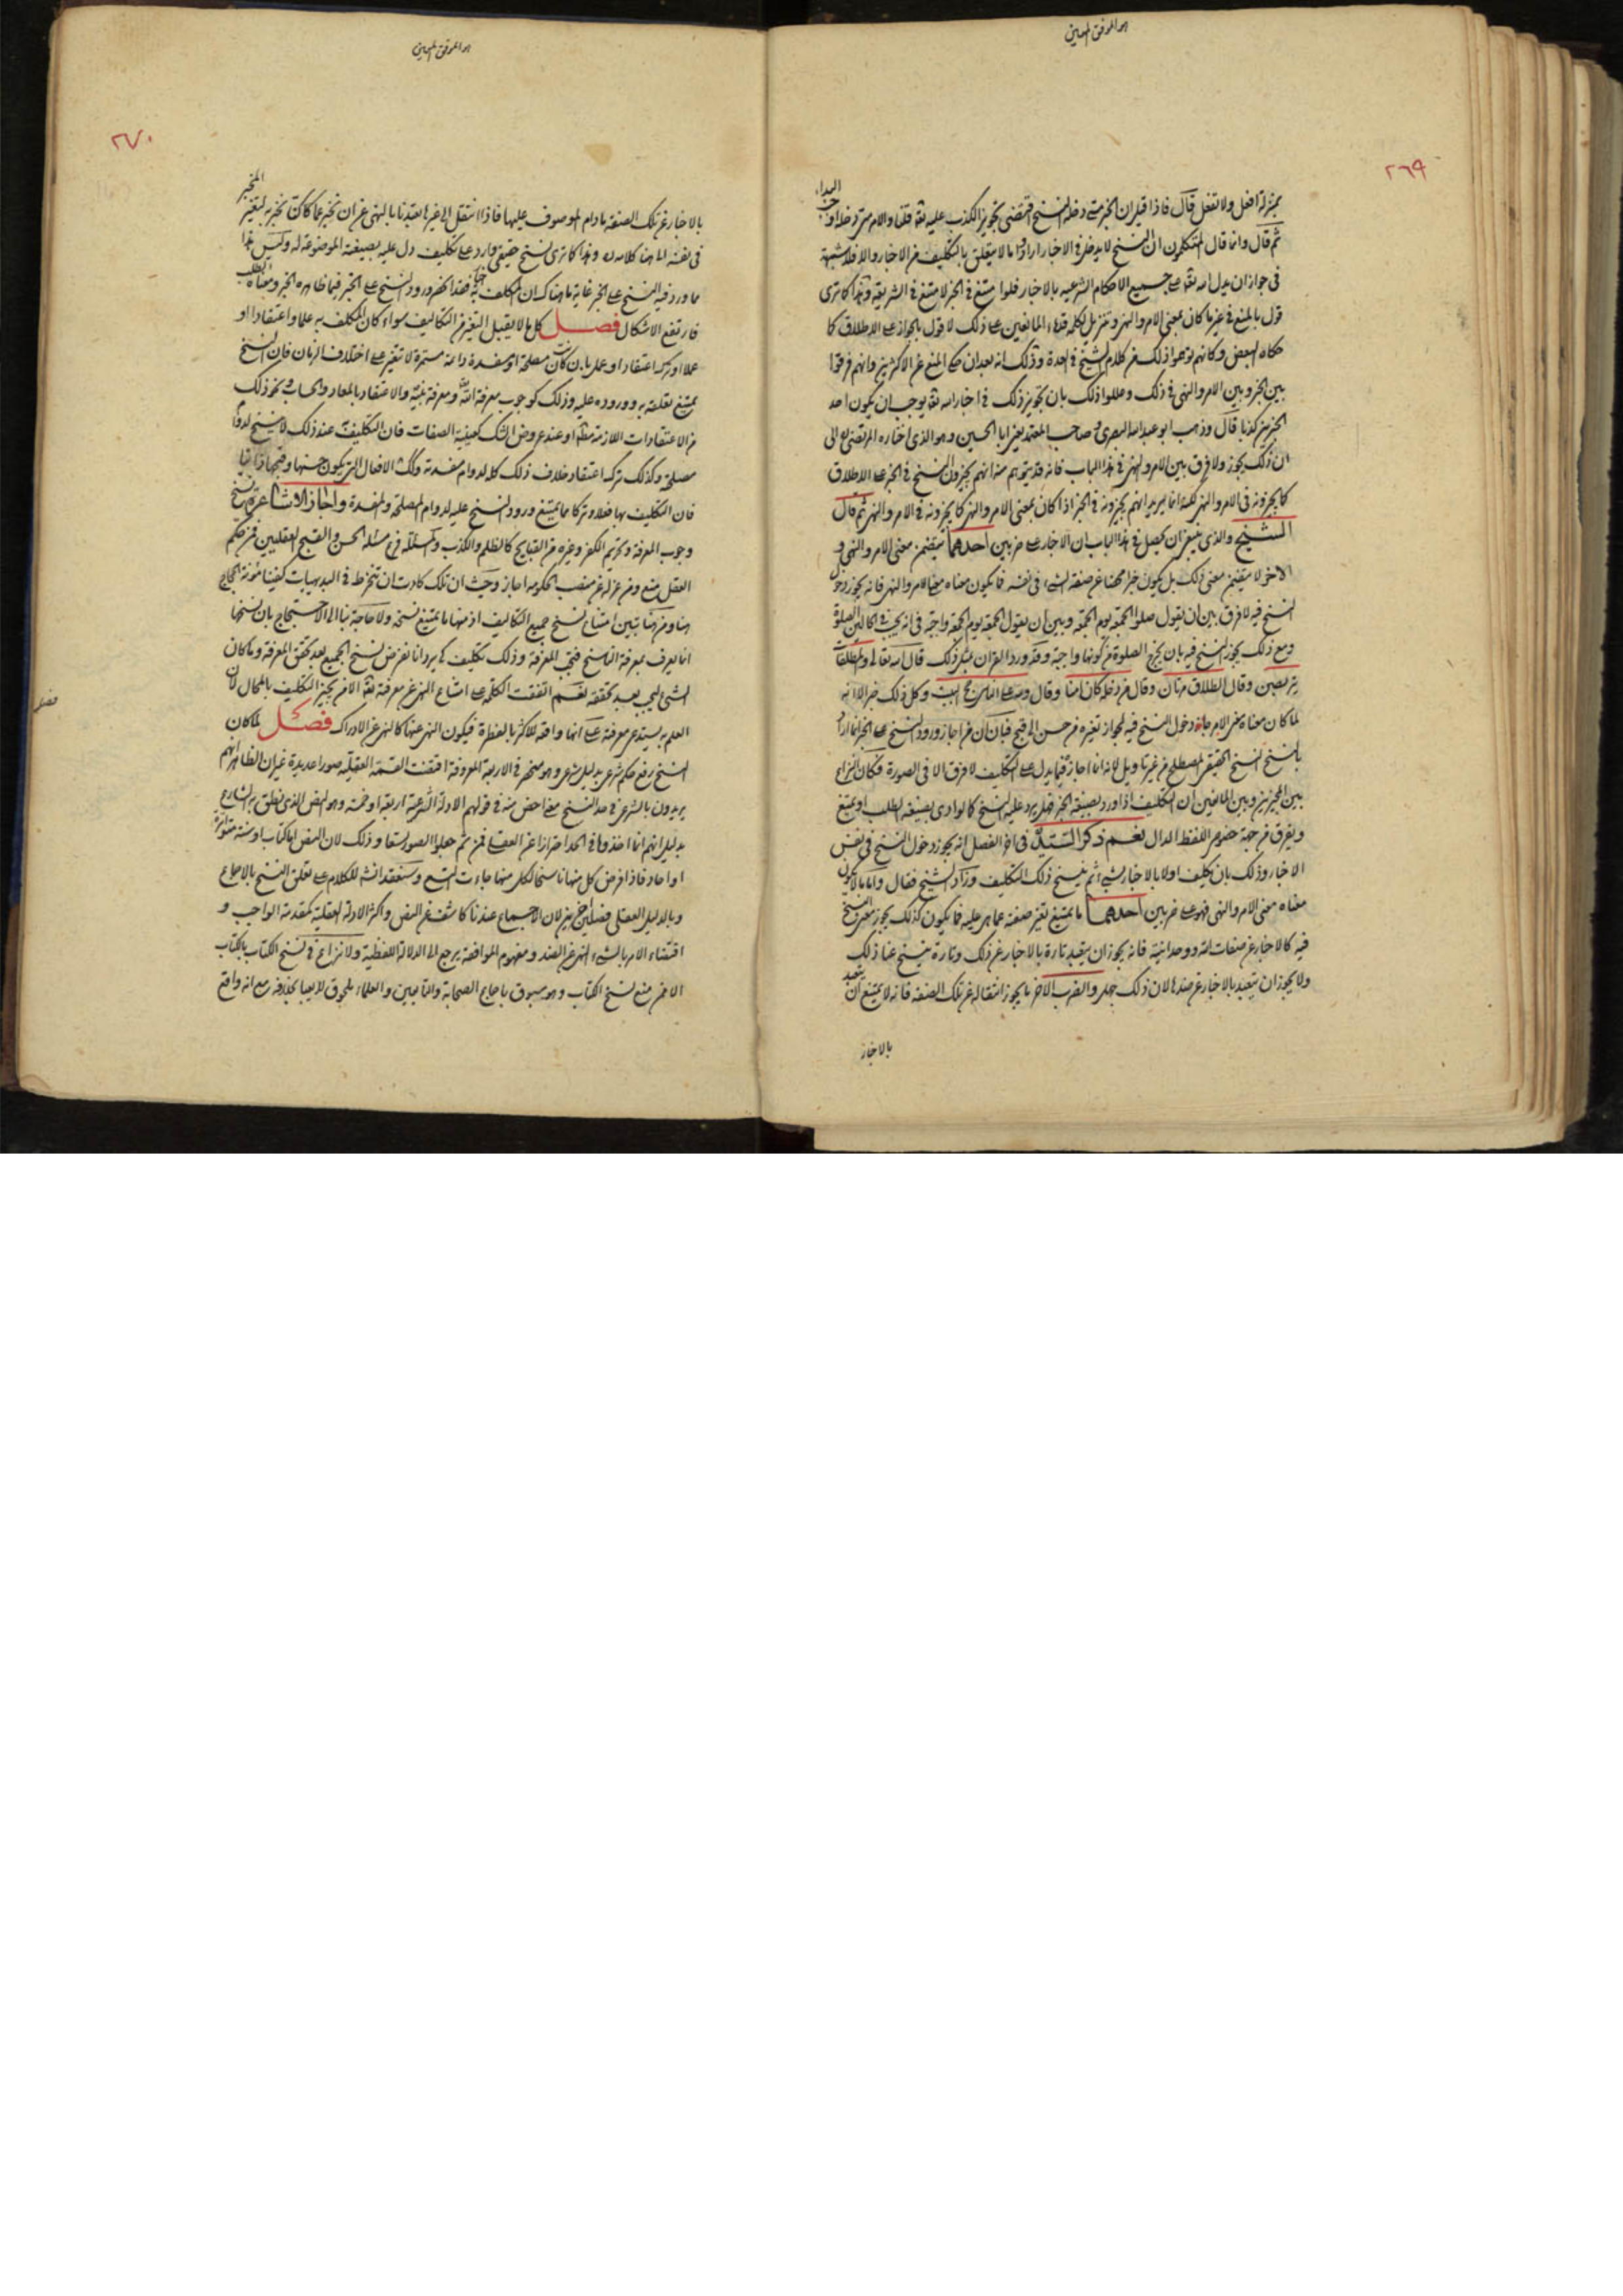 هو الموفق المعين
٢٦٩
بمنزلة افعل ولا تفعل قال فاذا قيل ان الخبر متى دخله النسخ اقتضى تجويز الكذب عليه تقه قلنا والامر متى دخله او
البداء
ثم قال وانما قال المتكلمون ان النسخ لا يدخل في الاخبار ارادوا ما لا يتعلق بالتكليف من الاخبار والا فلا شبهة
في جواز ان يدل الله تقه على جميع الاحكام الشرعيه بالاخبار فلو امتنع في الخبر لامتنع في الشريعة وهذا كما ترى
قول بالمنع في غير ما كان بمعنى الامر والنهي وتنزيل لكلمه قدماء المانعين على ذلك لا قول بالجواز على الاطلاق كما
حكاه البعض وكانهم توهموا ذلك من كلام الشيخ في العدة وذلك انه بعد ان حكى المنع عن الاكثرين وانهم فرقوا
بين الخبر وبين الامر والنهي في ذلك وعللوا ذلك بان تجويز ذلك في اخبار الله تقه يوجب ان يكون احد
الخبرين كذبا قال وذهب ابو عبد الله البصري وصاحب المعتمد يعني ابا الحسين وهو الذي اختاره المرتضى الى
ان ذلك يجوز ولا فرق بين الامر والنهي في هذا الباب فانه قد يتوهم منه انهم يجيزون النسخ في الخبر على الاطلاق
كما يجيزونه في الامر والنهي لكنه انما يريد انهم يجيزونه في الخبر اذا كان بمعنى الامر والنهي كما يجيزونه في الامر والنهي ثم قال
الشيخ والذي ينبغي ان يحصل في هذا الباب ان الاخبار على ضربين احدهما يتضمن معنى الامر والنهي و
الاخر لا يتضمن معنى ذلك بل يكون خبرا محضا عن صفة الشيء في نفسه فما يكون معناه معنى الامر والنهي فانه يجوز دخول
النسخ فيه لا فرق بين ان يقول صلوا الجمعة يوم الجمعة وبين ان يقول الجمعة يوم الجمعة واجبة في انه يجب في الحالين الصلوة
ومع ذلك يجوز النسخ فيه بان يخرج الصلوة من كونها واجبة وقد ورد القران بمثل ذلك قال الله تعالى والمطلقات
يتربصن وقال الطلاق مرتان وقال من دخله كان امنا وقال ولله على الناس حج البيت وكل ذلك خبر الا انه
لما كان معناه معنى الامر جاز دخول النسخ فيه لجواز تغيره من حسن الى قبح فبان ان من اجاز ورود النسخ على الخبر انما اراد
بالنسخ النسخ الحقيقي المصطلح من غير تاويل لانه انما اجاز فيما يدل على التكليف لا فرق الا في الصورة فكان النزاع
بين المجيزين وبين المانعين ان التكليف اذا ورد بصيغة الخبر فهل يرد عليه النسخ كالوارد بصيغة الطلب او يمتنع
ويفرق من جهة خصوص اللفظ الدال نعم ذكر السيد في اخر الفصل انه يجوز دخول النسخ في نفس
الاخبار وذلك بان يكلف اولا بالاخبار بشيء ثم ينسخ ذلك التكليف وزاد الشيخ فقال واما ما لا يكون
معناه معنى الامر والنهي فهو على ضربين احدهما ما يمتنع تغير صفته عما هو عليه فما يكون كذلك يجوز معنى النسخ
فيه كالاخبار عن صفات الله ووحدانيته فانه يجوز ان يتعبد تارة بالاخبار عن ذلك وتارة ينسخ عنا ذلك
ولا يجوز ان يتعبد بالاخبار عن ضدها لان ذلك جهل والضرب الاخر ما يجوز انتقاله عن تلك الصفة فانه لا يمتنع ان يتعبد
بالاخبار
هو الموفق المعين
٢٧٠
بالاخبار عن تلك الصفة ما دام الموصوف عليها فاذا انتقل الى غيرها تعبدنا بالنهي عن ان نخبر عما كان نخبر به لتغير المخبر
في نفسه الى هنا كلامه وهذا كما ترى نسخ حقيقي وارد على تكليف دل عليه بصيغته الموضوعة له وليس هذا
مما ورد فيه النسخ على الخبر غاية ما هناك ان المكلف به فقد انحصر ورود النسخ على الخبر فيما ظاهره الخبر ومعناه الطلب
فارتفع الاشكال فصل كل ما لا يقبل التغير من التكاليف سواء كان المكلف به علما واعتقادا او
عملا او ترك اعتقاد او عمل بان كانت مصلحة او مفسدة دائمة مستمرة لا تتغير على اختلاف الزمان فان النسخ
يمتنع تعلقه به ووروده عليه وذلك كوجوب معرفة الله ومعرفة نبيه والاعتقاد بالمعاد والحساب ونحو ذلك
من الاعتقادات اللازمة مطلقا او عند عروض الشك كعينية الصفات فان التكليف عند ذلك لا ينسخ لدوام
مصلحته وكذلك ترك اعتقاد خلاف ذلك كله لدوام مفسدته وكك الافعال التي يكون حسنها وقبحها ذاتيا
فان التكليف بها فعلا وتركا مما يمتنع ورود النسخ عليه لدوام المصلحة والمفسدة واجاز الاشاعرة نسخ
وجوب المعرفة وتحريم الكفر وغيره من القبايح كالظلم والكذب والمسئلة فرع مسئلة الحسن والقبح العقليين فمن حكم
العقل منع ومن عزله عن منصب الحكومه اجاز وحيث ان تلك كادت ان تنخرط في البديهيات كفينا مؤنة الحجاج
هنا ومن هنا تبين امتناع نسخ جميع التكاليف اذ منها ما يمتنع نسخه ولا حاجة بنا الى الاحتجاج بان نسخها
انما يعرف بمعرفة الناسخ فتجب المعرفة وذلك تكليف كي يرد انا نفرض نسخ الجميع بعد تحقق المعرفة وما كان
الشيء ليجب بعد تحققه نعم اتفقت الكلمة على امتناع النهي عن معرفة تقه الا من يجيز التكليف بالمحال لان
العلم به يستدعي معرفته على انها واقعة للاكثر بالفطرة فيكون النهي عنها كالنهي عن الادراك فصل لما كان
فصل
النسخ رفع حكم شرعي بدليل شرعي وهو منحصر في الاربعة المعروفة اقتضت القسمة العقلية صورا عديدة غير ان الظاهر انهم
يريدون بالشرعي في حد النسخ معنى اخص منه في قولهم الادلة الشرعية اربعة او خمسة وهو النص الذي نطق به الشارع
بدليل انهم انما اخذوها في الحد احترازا عن العقلي فمن ثم جعلوا الصور تسعا وذلك لان النص اما كتاب او سنة متواترة
او احاد فاذا فرض كل منها ناسخا لكل منها جاءت التسع وسنعقد انشه للكلام على تعلق النسخ بالاجماع
وبالدليل العقلي فصلين اخرين لان الاجماع عندنا كاشف عن النص واكثر الادلة العقلية كمقدمة الواجب و
اقتضاء الامر بالشيء النهي عن الضد ومفهوم الموافقة يرجع الى الدلالة اللفظية ولا نزاع في نسخ الكتاب بالكتاب
الا ممن منع نسخ الكتاب وهو مسبوق باجماع الصحابة والتابعين والعلماء ملحوق لا يعبا بخلافه مع انه واقع